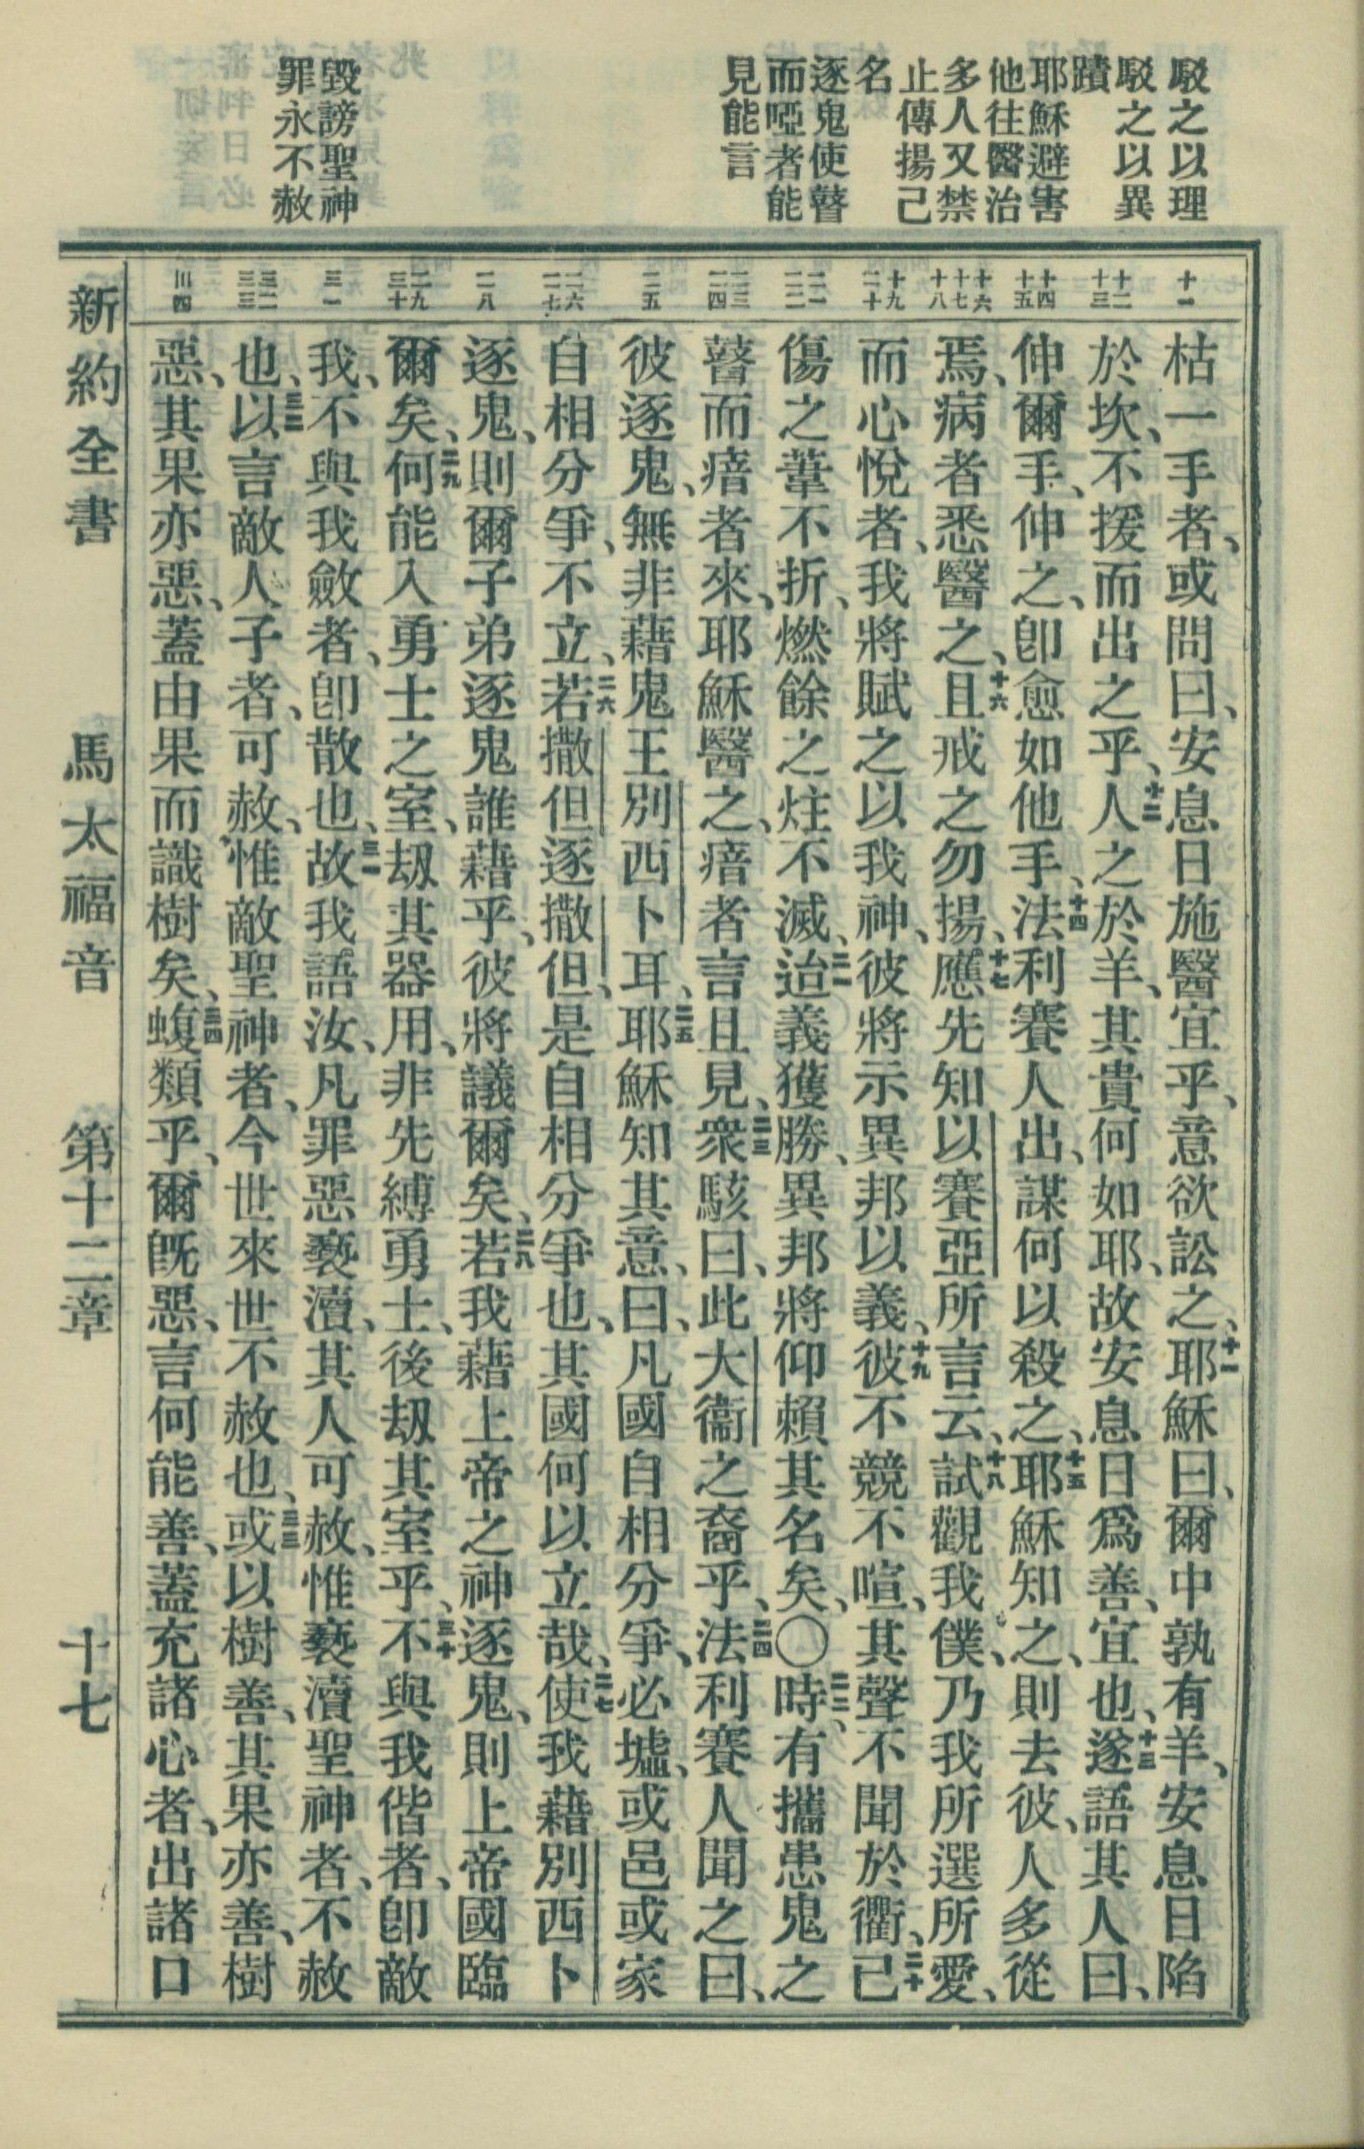 駁之以理
駁之以異
蹟
耶穌避害
他往醫治
多人又禁
止傳揚己
名
逐鬼使瞽
而啞者能
見能言
毀謗聖神
罪永不赦
十一
十二 十三
十四 十五
十六 十七 十八
十九 二十
二一 二二
二三 二四
二五
二六 二七
二八
二九 三十
三一
三二 三三
三四
枯一手者、或問曰、安息日施醫宜乎、意欲訟之、十一耶穌曰、爾中孰有羊、安息日陷
於坎、不援而出之乎、十二人之於羊、其貴何如耶、故安息日爲善、宜也、十三遂語其人曰、
伸爾手、伸之、卽愈如他手、十四法利賽人出、謀何以殺之、十五耶穌知之、則去彼、人多從
焉、病者悉醫之、十六且戒之勿揚、十七應先知以賽亞所言云、十八試觀我僕、乃我所選所愛、
而心悅者、我將賦之以我神、彼將示異邦以義、十九彼不競不喧、其聲不聞於衢、二十已
傷之葦不折、燃餘之炷不滅、二一迨義獲勝、異邦將仰賴其名矣、〇二二時、有攜患鬼之
瞽而瘖者來、耶穌醫之、瘖者言且見、二三衆駭曰、此大衞之裔乎、二四法利賽人聞之曰、
彼逐鬼、無非藉鬼王別西卜耳、二五耶穌知其意、曰、凡國自相分爭、必墟、或邑或家
自相分爭、不立、二六若撒但逐撒但、是自相分爭也、其國何以立哉、二七使我藉別西卜
逐鬼、則爾子弟逐鬼誰藉乎、彼將議爾矣、二八若我藉上帝之神逐鬼、則上帝國臨
爾矣、二九何能入勇士之室、刼其器用、非先縛勇士、後刼其室乎、三十不與我偕者、卽敵
我、不與我斂者、卽散也、三一故我語汝、凡罪惡褻瀆、其人可赦、惟褻瀆聖神者、不赦
也、三二以言敵人子者、可赦、惟敵聖神者、今世來世不赦也、三三或以樹善、其果亦善、樹
惡、其果亦惡、蓋由果而識樹矣、三四蝮類乎、爾旣惡、言何能善、蓋充諸心者、出諸口
新約全書 馬太福音 第十二章 十七